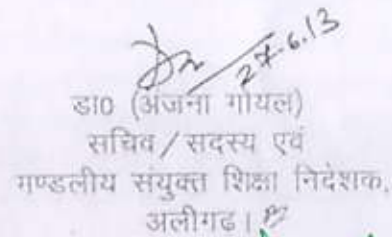 27.6.13
डा0 (अंजना गोयल)
सचिव/सदस्य एवं
मण्डलीय संयुक्त शिक्षा निदेशक,
अलीगढ।